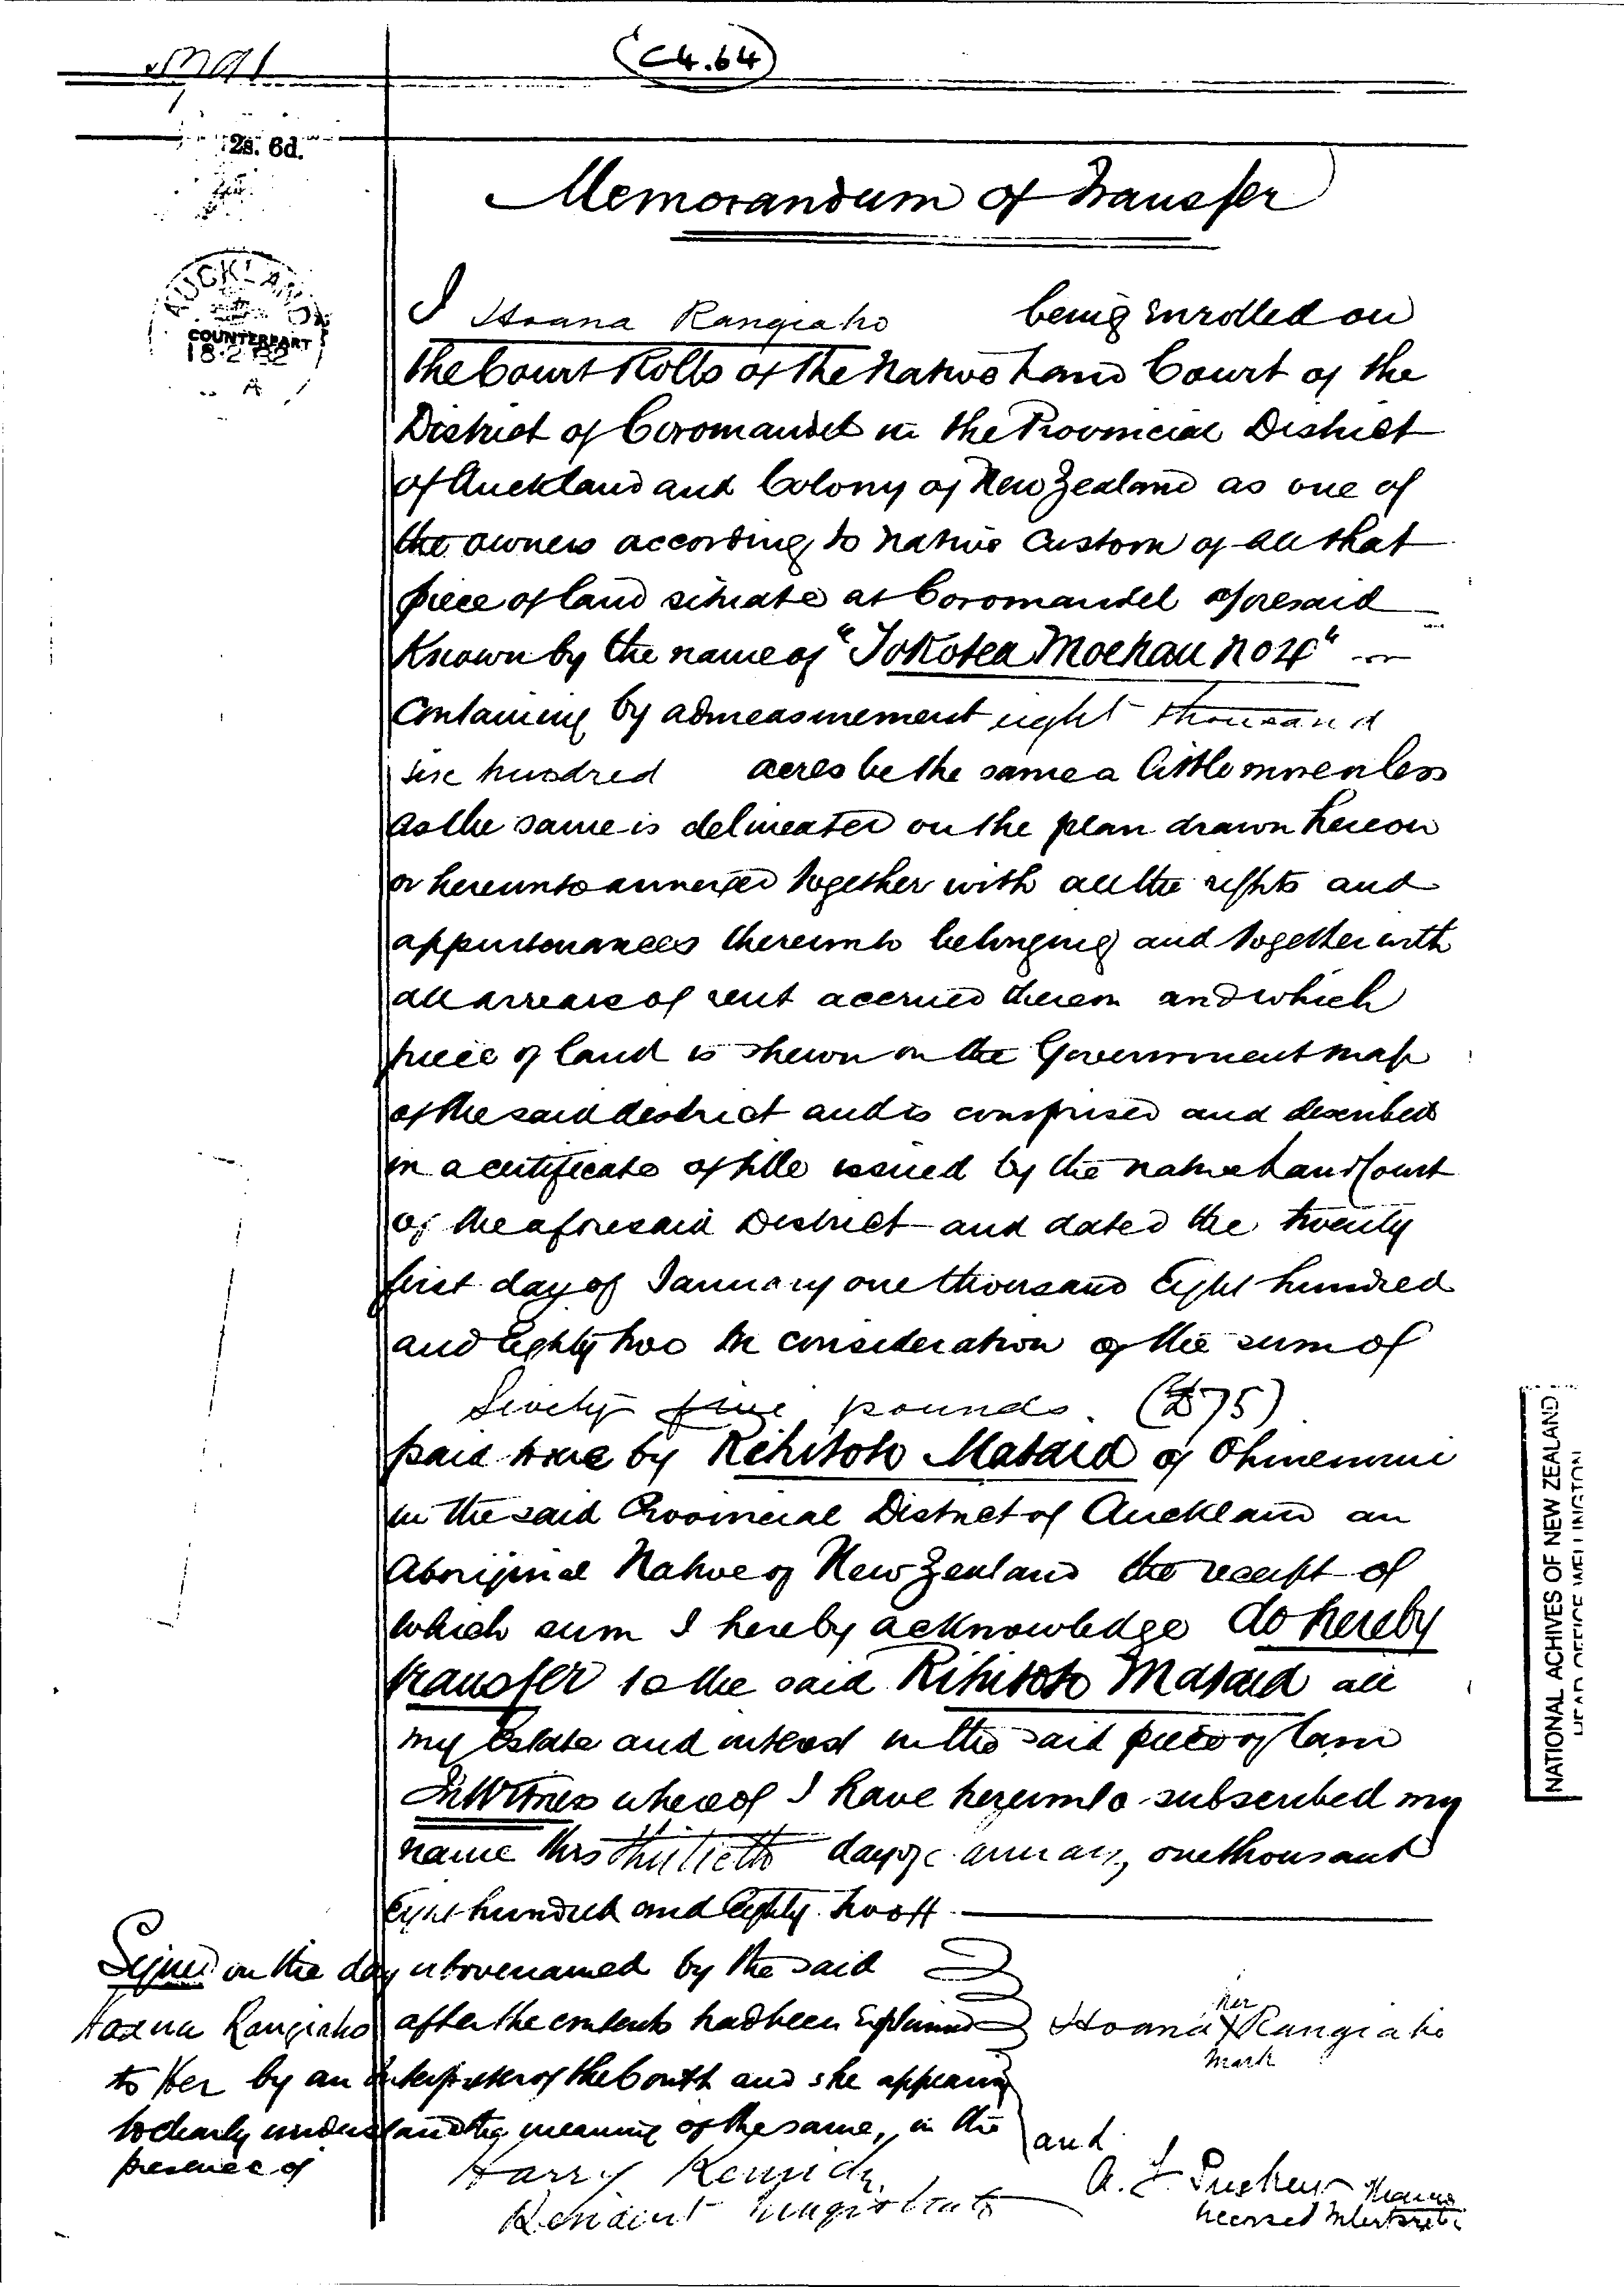 (C4.64)
2s. 6d.
AUCKLAND
COUNTERPART
18.2.82
A
Memorandum of Transfer
I Hoana Rangiaho being enrolled on
the Court Rolls of the Native Land Court of the
District of Coromandel in the Provincial District
of Auckland and Colony of New Zealand as one of
the owners according to Native Custom of all that
piece of land situate at Coromandel aforesaid
Known by the name of "Tokatea Moehau No 4"
containing by admeasurement eight thousand
six hundred acres be the same a little more or less
as the same is delineated on the plan drawn hereon
or hereunto annexed together with all the rights and
appurtenances thereunto belonging and together with
all arrears of rent accrued thereon and which
piece of land is shewn on the Government map
of the said district and is comprised and described
in a certificate of title issued by the Native Land Court
of the aforesaid District and dated the twenty
first day of January one thousand Eight hundred
and Eighty two In consideration of the sum of
Seventy five pounds. (£75)
paid to me by Rihitoto Mataia of Ohinemuri
in the said Provincial District of Auckland an
Aboriginal Native of New Zealand the receipt of
which sum I hereby acknowledge do hereby
transfer to the said Rihitoto Mataia all
my Estate and interest in the said piece of land
In Witness whereof I have hereunto subscribed my
name this Thirtieth day of January, one thousand
Eight hundred and Eighty two
Signed on the day abovenamed by the said
Hoana Rangiaho after the contents had been Explained Hoana her X mark Rangiaho
to Her by an Interpreter of the Court and she appearing
to clearly understand the meaning of the same, in the
presence of Harry Kenrick and
Resident Magistrate A. J. Puckey Thames
Licensed Interpreter
NATIONAL ACHIVES OF NEW ZEALAND
HEAD OFFICE WELLINGTON